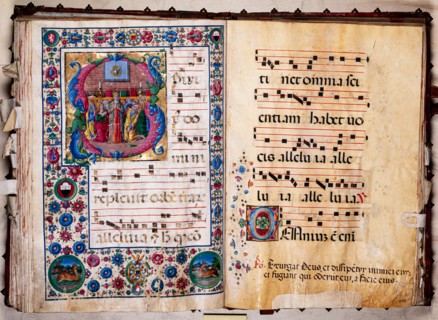 repleuit orbē terraꝝ
alleluia ⁊ h qꝺ cō
ti net omnia sci
entiam habet uo
cis allelu ia alle
lu ia alle lu ia
Ps. Exurgat Deus, et dissipentur inimici eius,
et fugiant qui oderunt eum, a facie eius.